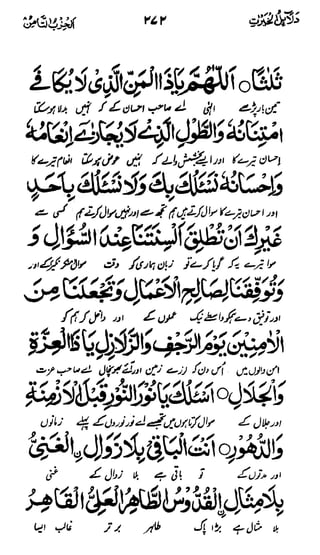 دلائل الخیرات ۲۷۲ الحزب الثامن
ثَلٰثًا ○ اَللّٰهُمَّ يَاذَا الْمَنِّ الَّذِيْ لَا يُكَافٰى
تین بار پڑھے الٰہی اے صاحب احسان کے کہ نہیں بدلا ہو سکتا
امْتِنَانُهٗ وَالطَّوْلِ الَّذِيْ لَا يُجَازٰى اِنْعَامُهٗ
احسان تیرے کا اور ایسے بخشش والے کہ نہیں عوض ہو سکتا انعام تیرے کا
وَاِحْسَانُهٗ نَسْئَلُكَ بِكَ وَلَا نَسْئَلُكَ بِاَحَدٍ
اور احسان تیرے کا سوال کرتے ہیں ہم تجھ سے اور نہیں سوال کرتے ہم کسی سے
غَيْرِكَ اَنْ تُطْلِقَ اَلْسِنَتَنَا عِنْدَ السُّؤَالِ وَ
سوا تیرے یہ کہ گویا کرے تو زبان ہماری کو وقت سوال منکر نکیر کے اور
تُوَفِّقَنَا لِصَالِحِ الْاَعْمَالِ وَتَجْعَلَنَا مِنَ
اور توفیق دے ہم کو واسطے نیک عملوں کے اور داخل کر ہم کو
الْاٰمِنِيْنَ يَوْمَ الرَّجْفِ وَالزَّلَازِلِ يَاذَا الْعِزَّةِ
امن والوں میں اُس دن کہ لرزے زمین اور بھونچال اے صاحب عزت
وَالْجَلَالِ ○ اَسْئَلُكَ يَانُوْرَ النُّوْرِ قَبْلَ الْاَزْمِنَةِ
اور جلال کے سوال کرتا ہوں میں تجھ سے اے نور نوروں کے پہلے زمانوں
وَالدُّهُوْرِ ○ اَنْتَ الْبَاقِيْ بِلَا زَوَالِ نِ الْغَنِيُّ
اور مدتوں کے تو باقی ہے بلا زوال کے غنی
بِلَا مِثَالِ نِ الْقُدُّوْسُ الطَّاهِرُ الْعَلِيُّ الْقَاهِرُ
بلا مثال ہے بڑا پاک طاہر برتر غالب ایسا